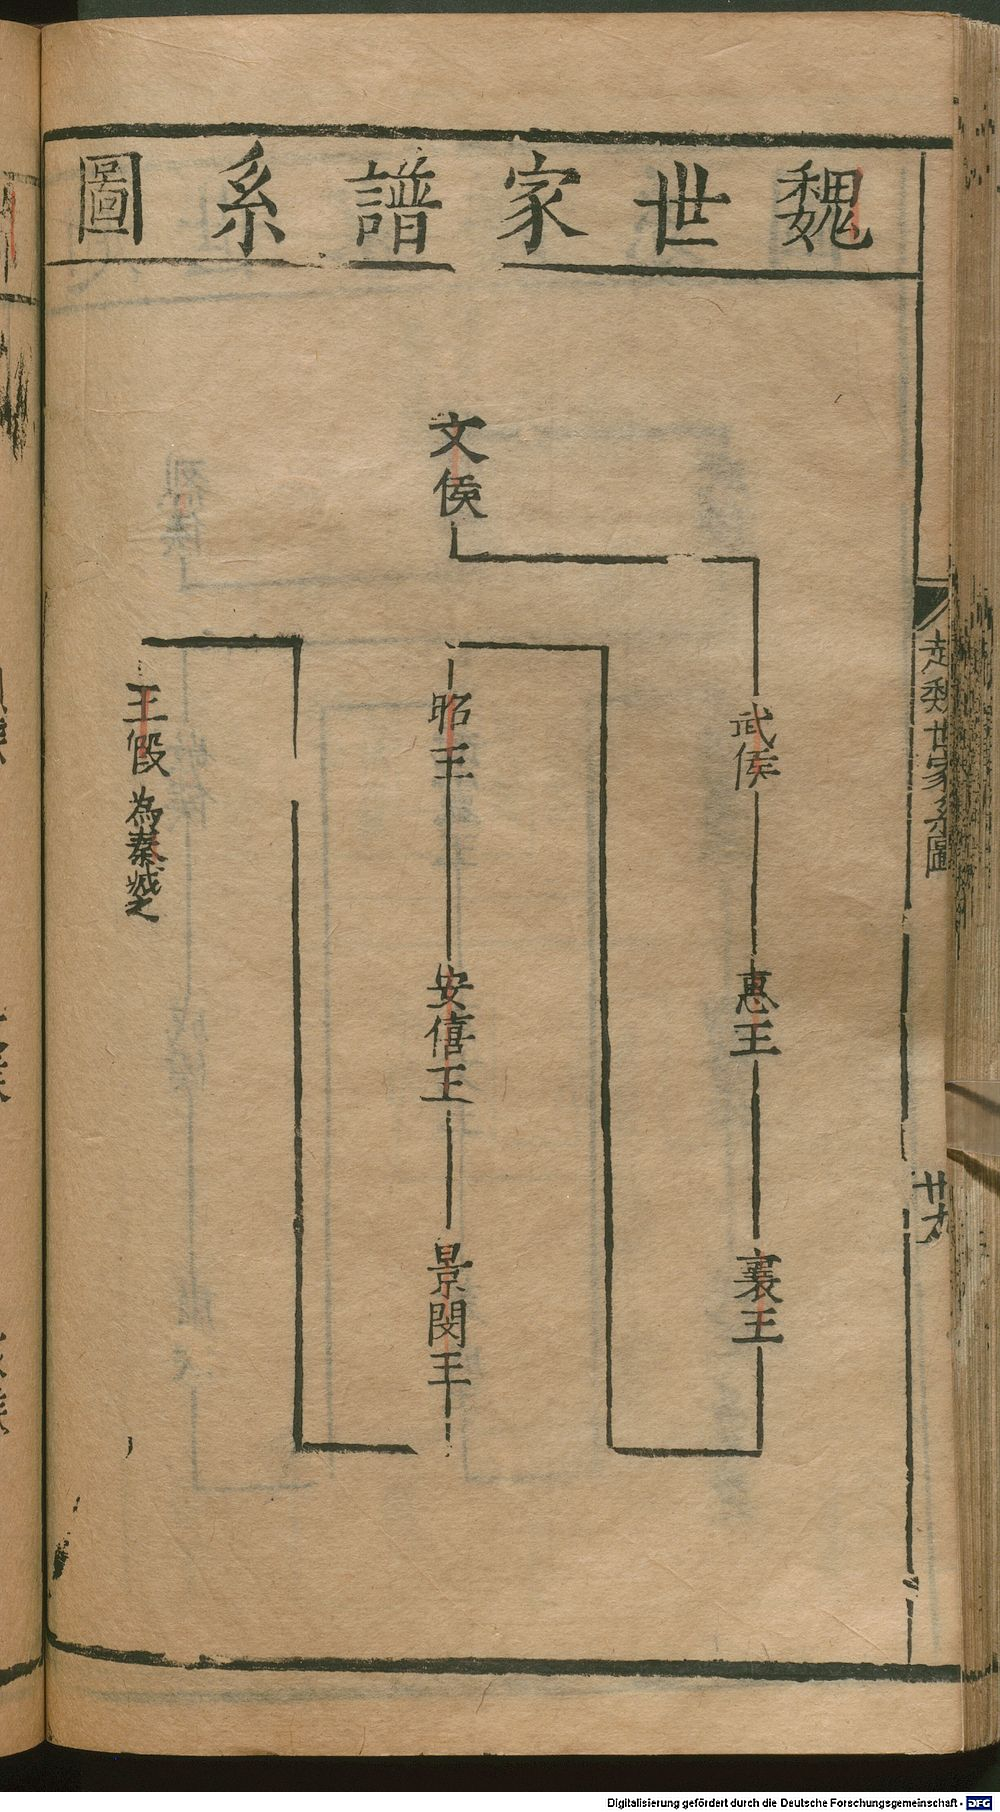 魏世家譜系圖
文侯
武侯
惠王
襄王
昭王
安僖王
景閔王
王假 為秦㓕之
趙魏世家系圖
廿九
Digitalisierung gefördert durch die Deutsche Forschungsgemeinschaft - DFG